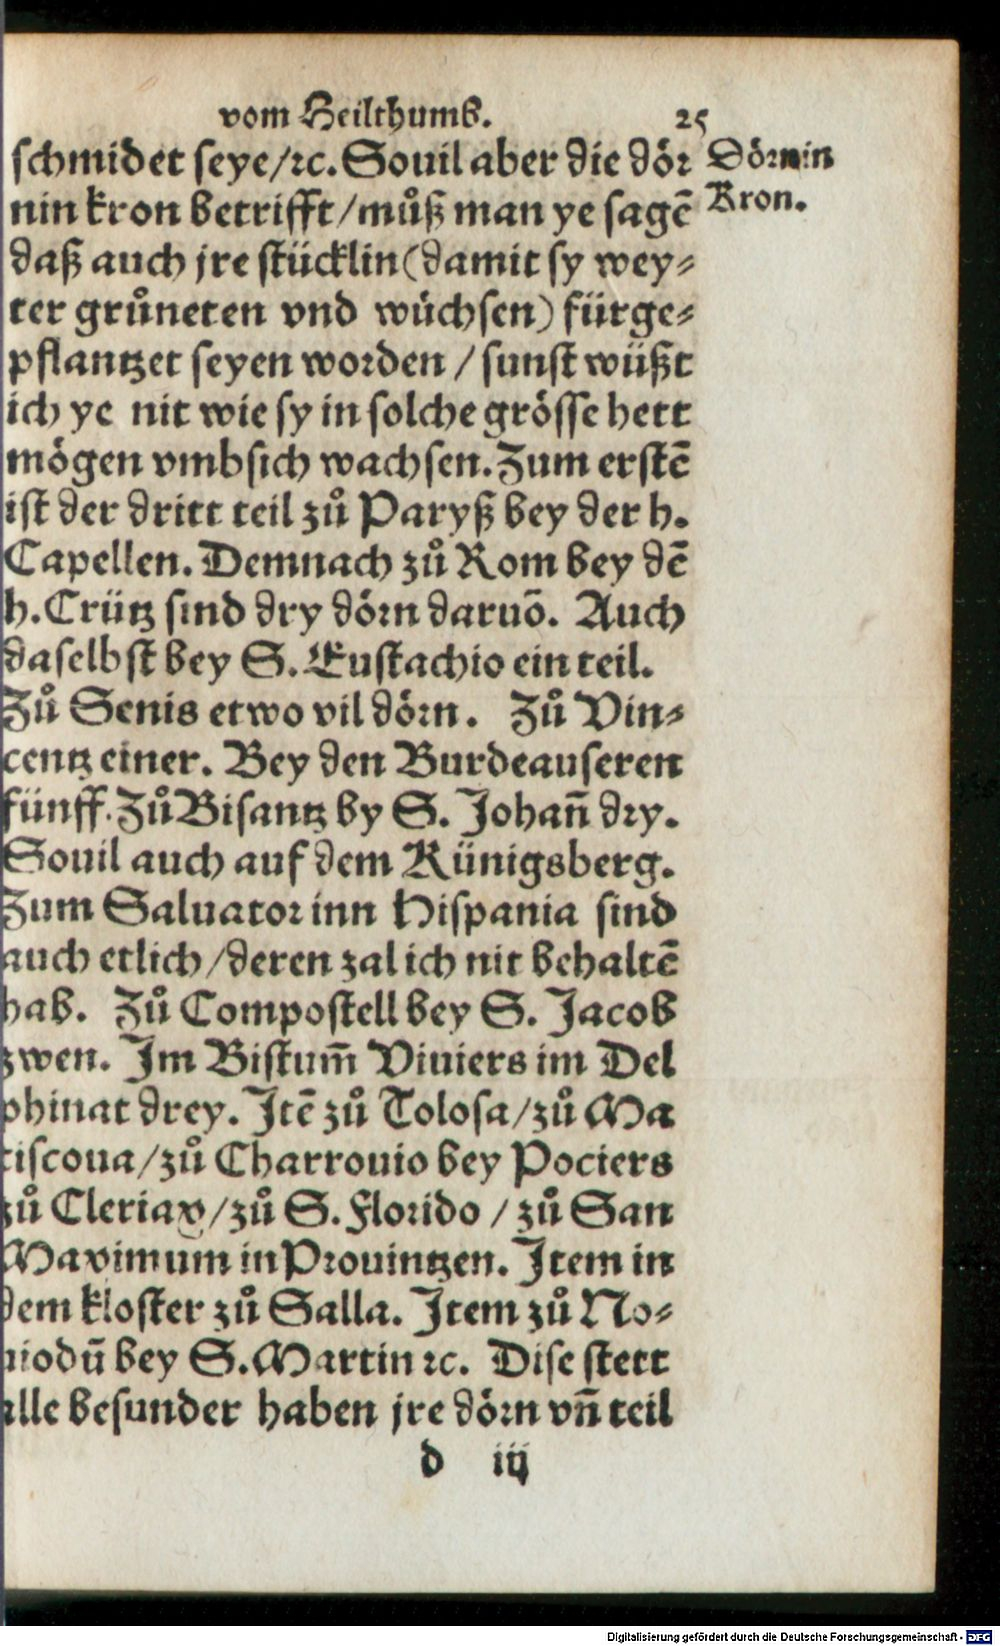 vom Heilthumb. 25
schmidet seye/ꝛc. Souil aber die dör
Dörnin
Kron.
nin kron betrifft/můß man ye sagē
daß auch jre stücklin(damit sy wey⸗
ter grůneten vnd wüchsen) fürge⸗
pflantzet seyen worden / sunst wüßt
ich ye nit wie sy in solche grösse hett
mögen vmbsich wachsen. Zum erstē
ist der dritt teil zů Paryß bey der h.
Capellen. Demnach zů Rom bey dē
h. Crütz sind dry dörn daruō. Auch
daselbst bey S. Eustachio ein teil.
Zů Senis etwo vil dörn. Zů Vin⸗
centz einer. Bey den Burdeauseren
fünff. Zů Bisantz by S. Johañ dry.
Souil auch auf dem Künigsberg.
Zum Saluator inn Hispania sind
auch etlich/deren zal ich nit behaltē
hab. Zů Compostell bey S. Jacob
zwen. Im Bistum̃ Viuiers im Del
phinat drey. Itē zů Tolosa/zů Ma
tiscona/zů Charrouio bey Pociers
zů Cleriax/zů S. Florido / zů San
Maximum in Prouintzen. Item in
dem kloster zů Salla. Item zů No⸗
uiodū bey S. Martin ꝛc. Dise stett
alle besunder haben jre dörn vñ teil
d iij
Digitalisierung gefördert durch die Deutsche Forschungsgemeinschaft - DFG